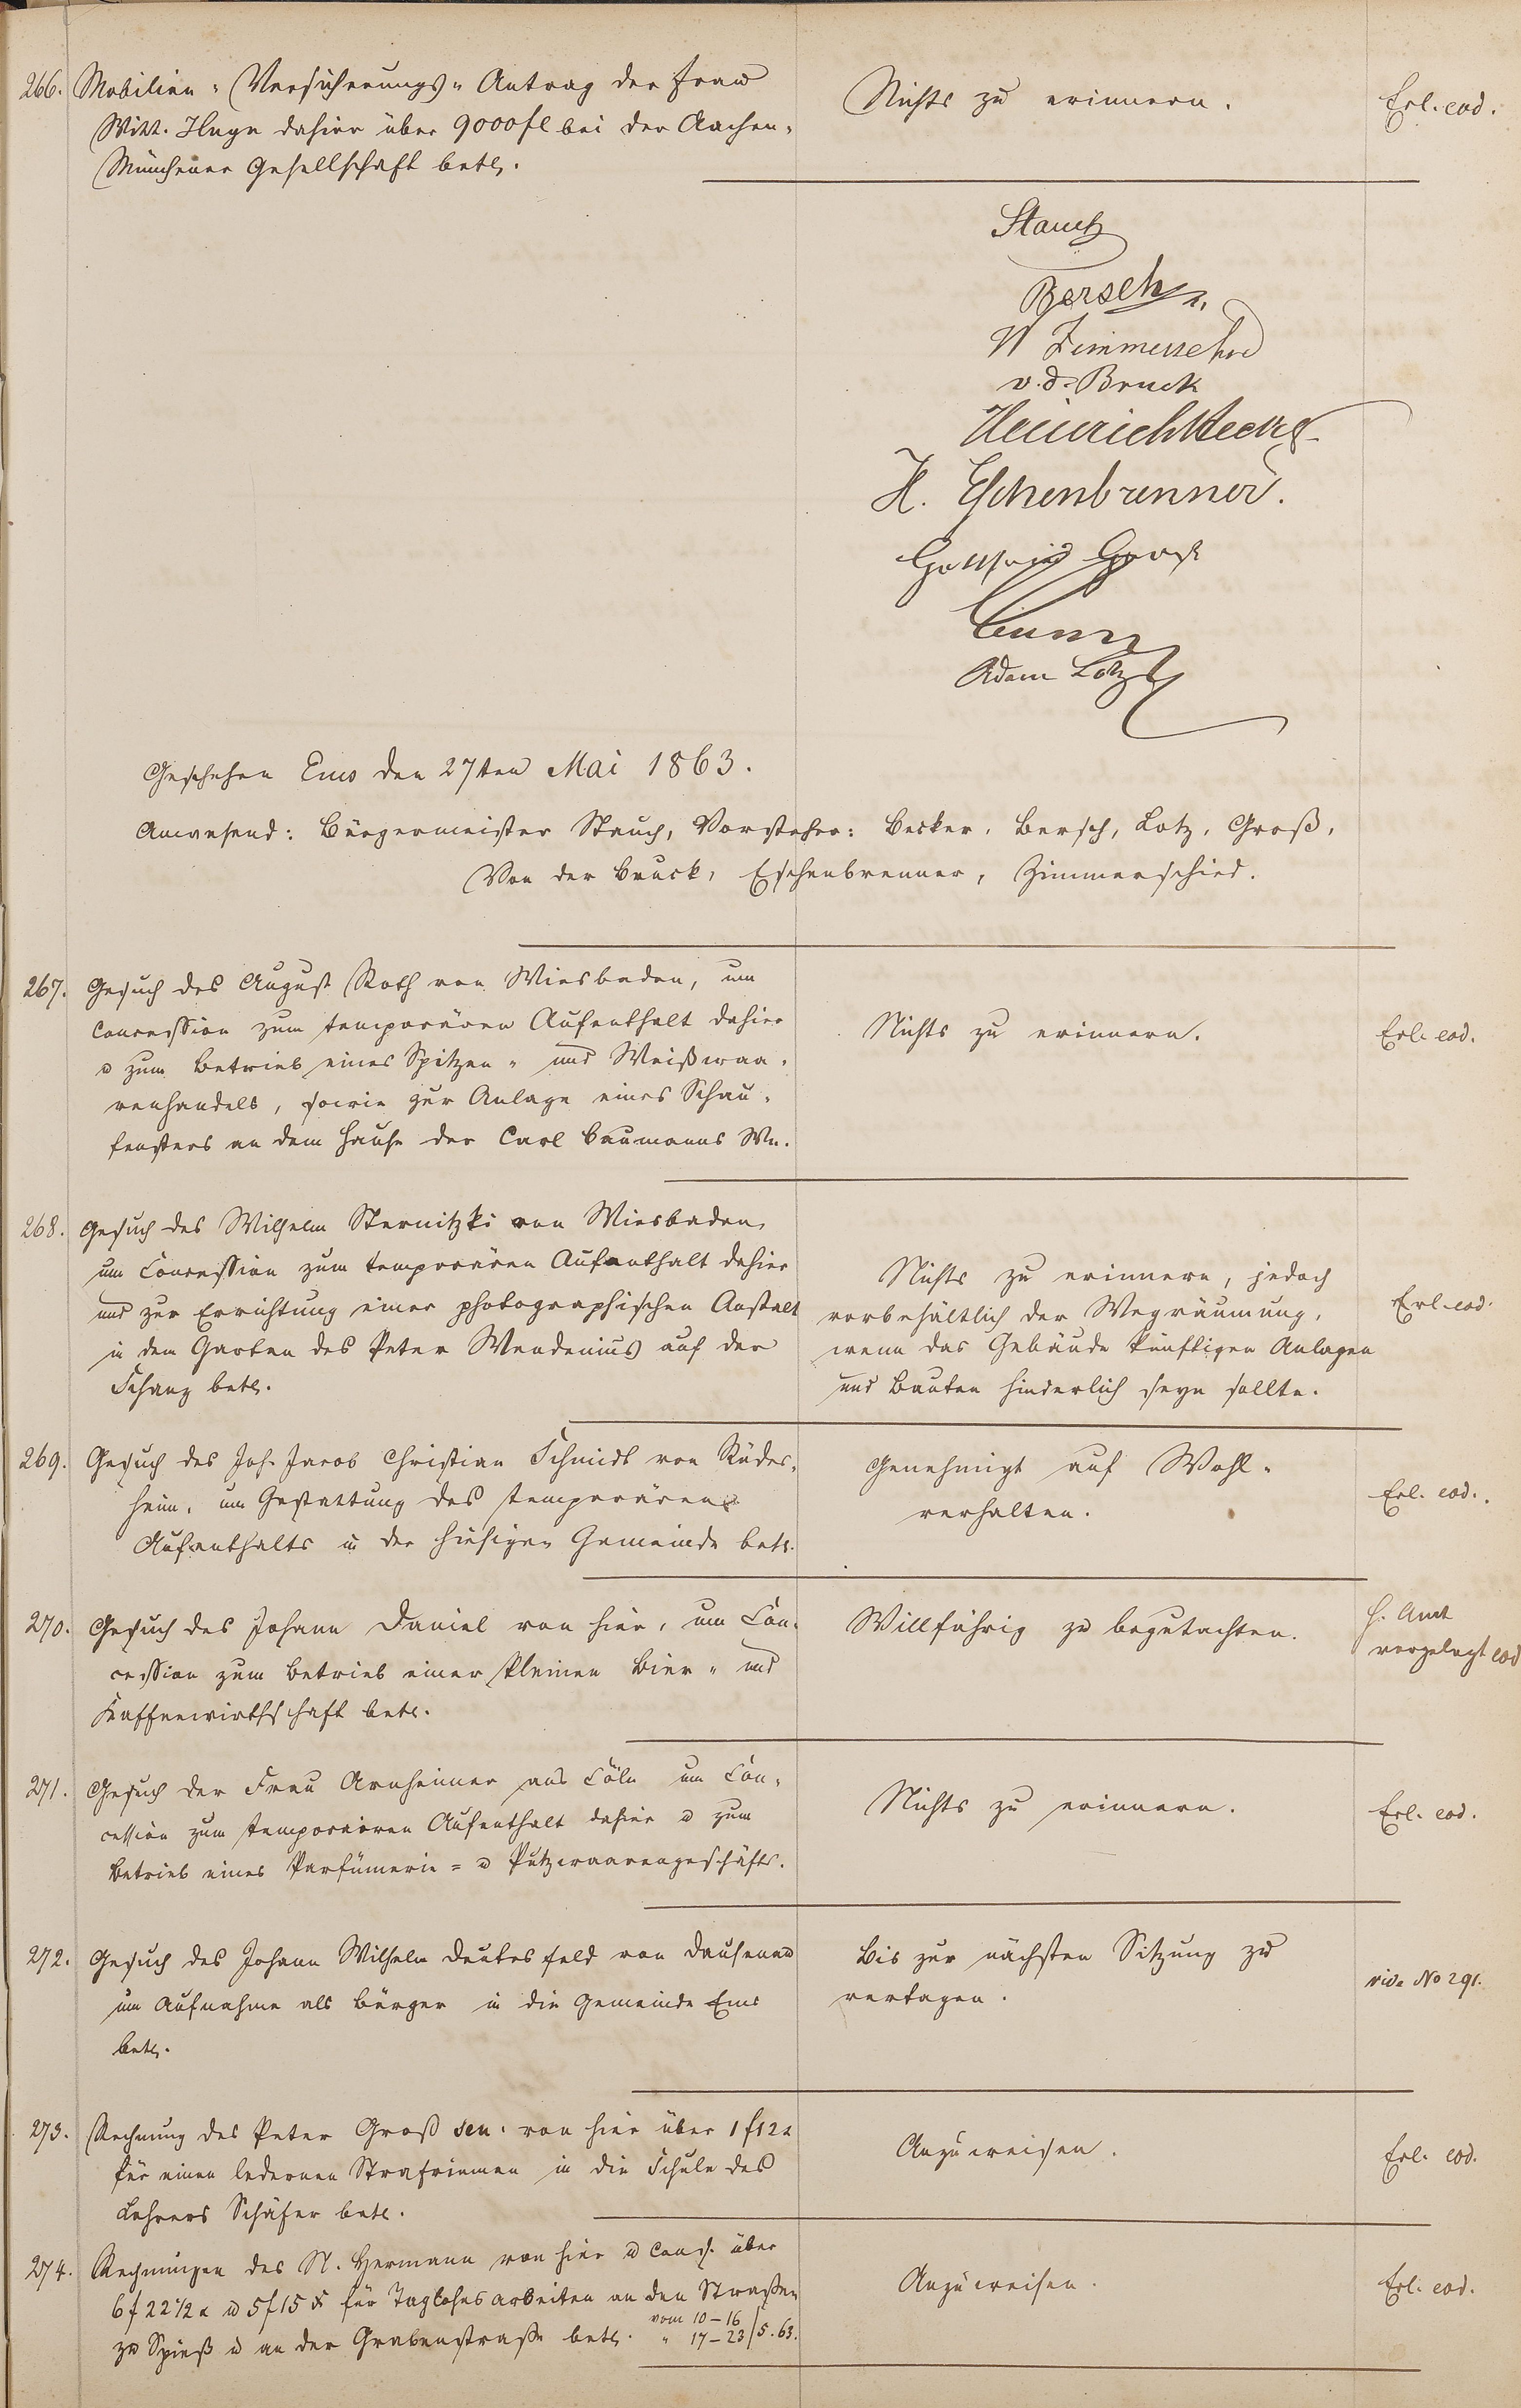 266. Mobilien- Versicherungs- Antrag der Frau
Witt. Huge dahier über 9000 fl bei der Aachen-
Münchener Gesellschaft betr.
Nichts zu erinnern.
Erl. eod.
Stauch
Bersch
W Zimmerschied
v. d. Bruck
Heinrich Becker
H. Eschenbrenner.
Gottfried Groß
Adam Lotz
Geschehen Ems den 27ten Mai 1863.
Anwesend: Bürgermeister Stauch, Vorsteher: Becker, Bersch, Lotz, Groß,
Von der Bruck, Eschenbrenner, Zimmerschied.
267. Gesuch des August Roth von Wiesbaden, um
Concession zum temporären Aufenthalt dahier
u zum Betrieb eines Spitzen- und Weißwaa-
renhandels, sowie zur Anlage eines Schau-
fensters an dem Hause der Carl Baumanns We.
Nichts zu erinnern.
Erl. eod.
268. Gesuch des Wilhelm Sternitzki von Wiesbaden
um Concession zum temporären Aufenthalt dahier
und zur Errichtung einer photographischen Anstalt
in dem Garten des Peter Wendenius auf der
Schanz betr.
Nichts zu erinnern, jedoch
vorbehältlich der Wegräumung,
wenn das Gebäude künftigen Anlagen
und Bauten hinderlich seyn sollte.
Erl. eod.
269. Gesuch des Joh. Jacob Christian Schmidt von Rüdes-
heim, um Gestattung des temporären
Aufenthalts in der hiesigen Gemeinde betr.
Genehmigt auf Wohl-
verhalten.
Erl. eod.
270. Gesuch des Johann Daniel von hier, um Con-
cession zum Betrieb einer kleinen Bier- und
Kaffeewirthschaft betr.
Willfährig zu begutachten.
H. Amt
vorgelegt eod
271. Gesuch der Frau Arnheimer aus Cöln um Con-
cession zum temporären Aufenthalt dahier u zum
Betrieb eines Parfümerie- u Putzwaarengeschäfts.
Nichts zu erinnern.
Erl. eod.
272. Gesuch des Johann Wilhelm Deutesfeld von Dausenau
um Aufnahme als Bürger in die Gemeinde Ems
betr.
Bis zur nächsten Sitzung zu
vertagen.
vide No 291.
273. Rechnung des Peter Groß sen. von hier über 1 f 12 x
für einen ledernen Strafriemen in die Schule des
Lehrers Schäfer betr.
Anzuweisen.
Erl. eod.
274. Rechnungen des N. Hermann von hier u Cons. über
6 f 22 1/2 x u 5 f 15 x für Taglohnsarbeiten an den Straßen
zu Spieß u an der Grabenstraße betr. vom 10-16
" 17-23 / 5. 63.
Anzuweisen.
Erl. eod.